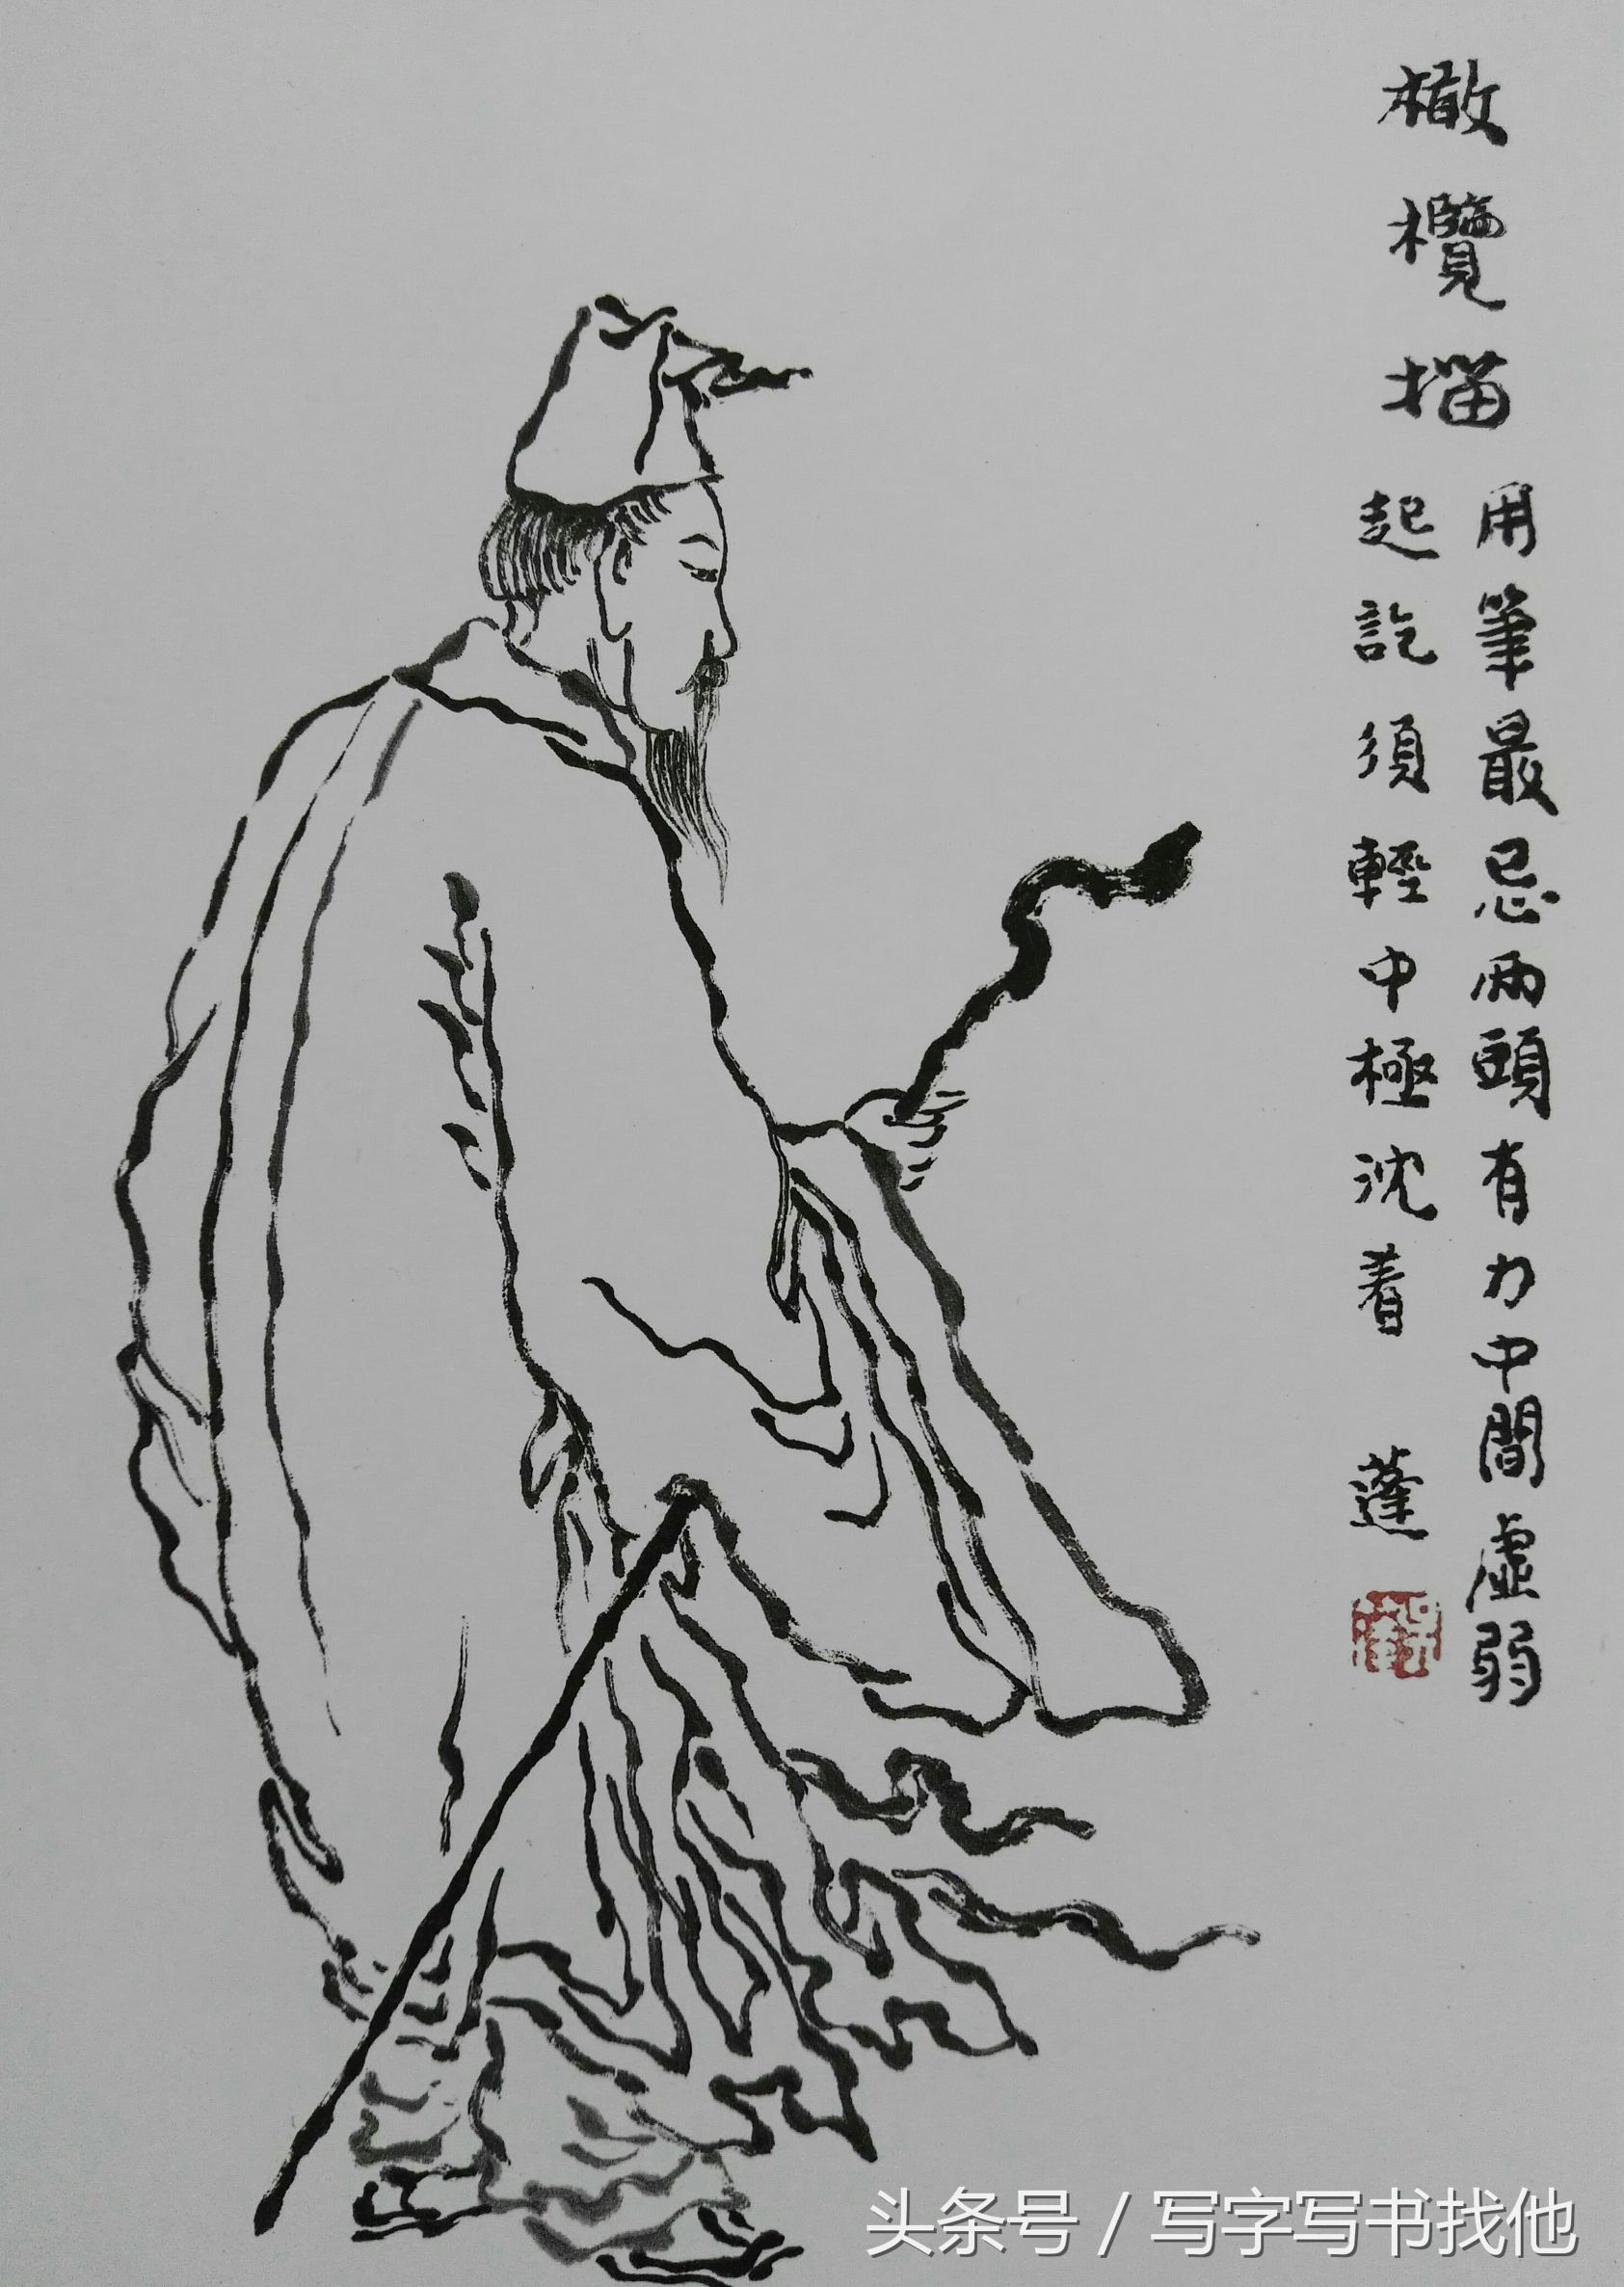 橄欖描
用筆最忌兩頭有力中間虛弱
起訖須輕中極沈着
蓬
头条号 / 写字写书找他